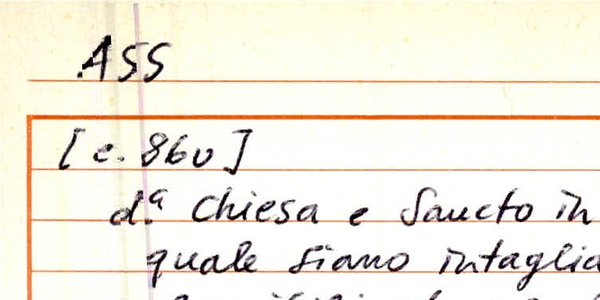 ASS
[c. 86v]
d.ª Chiesa e Sancto in
quale siano intaglia